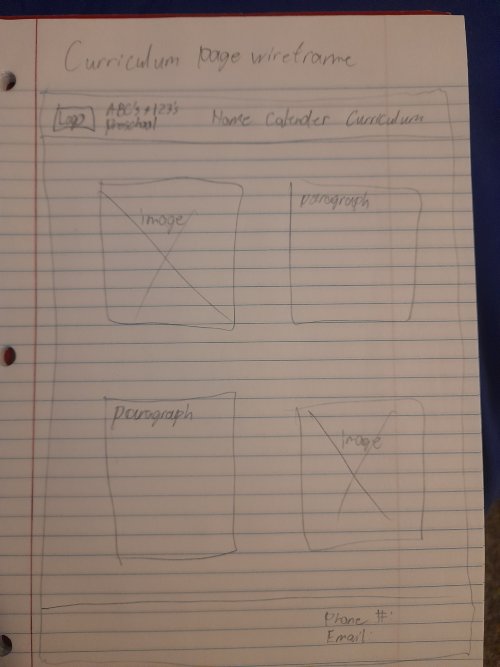 Curriculum page wireframe
Logo ABC's + 123's preschool
Home Calender Curriculum
image
paragraph
paragraph
image
Phone #:
Email: